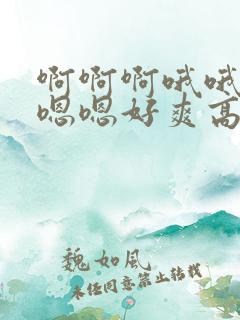 啊啊啊哦哦
嗯嗯好爽高
魏如風
未经同意禁止转载